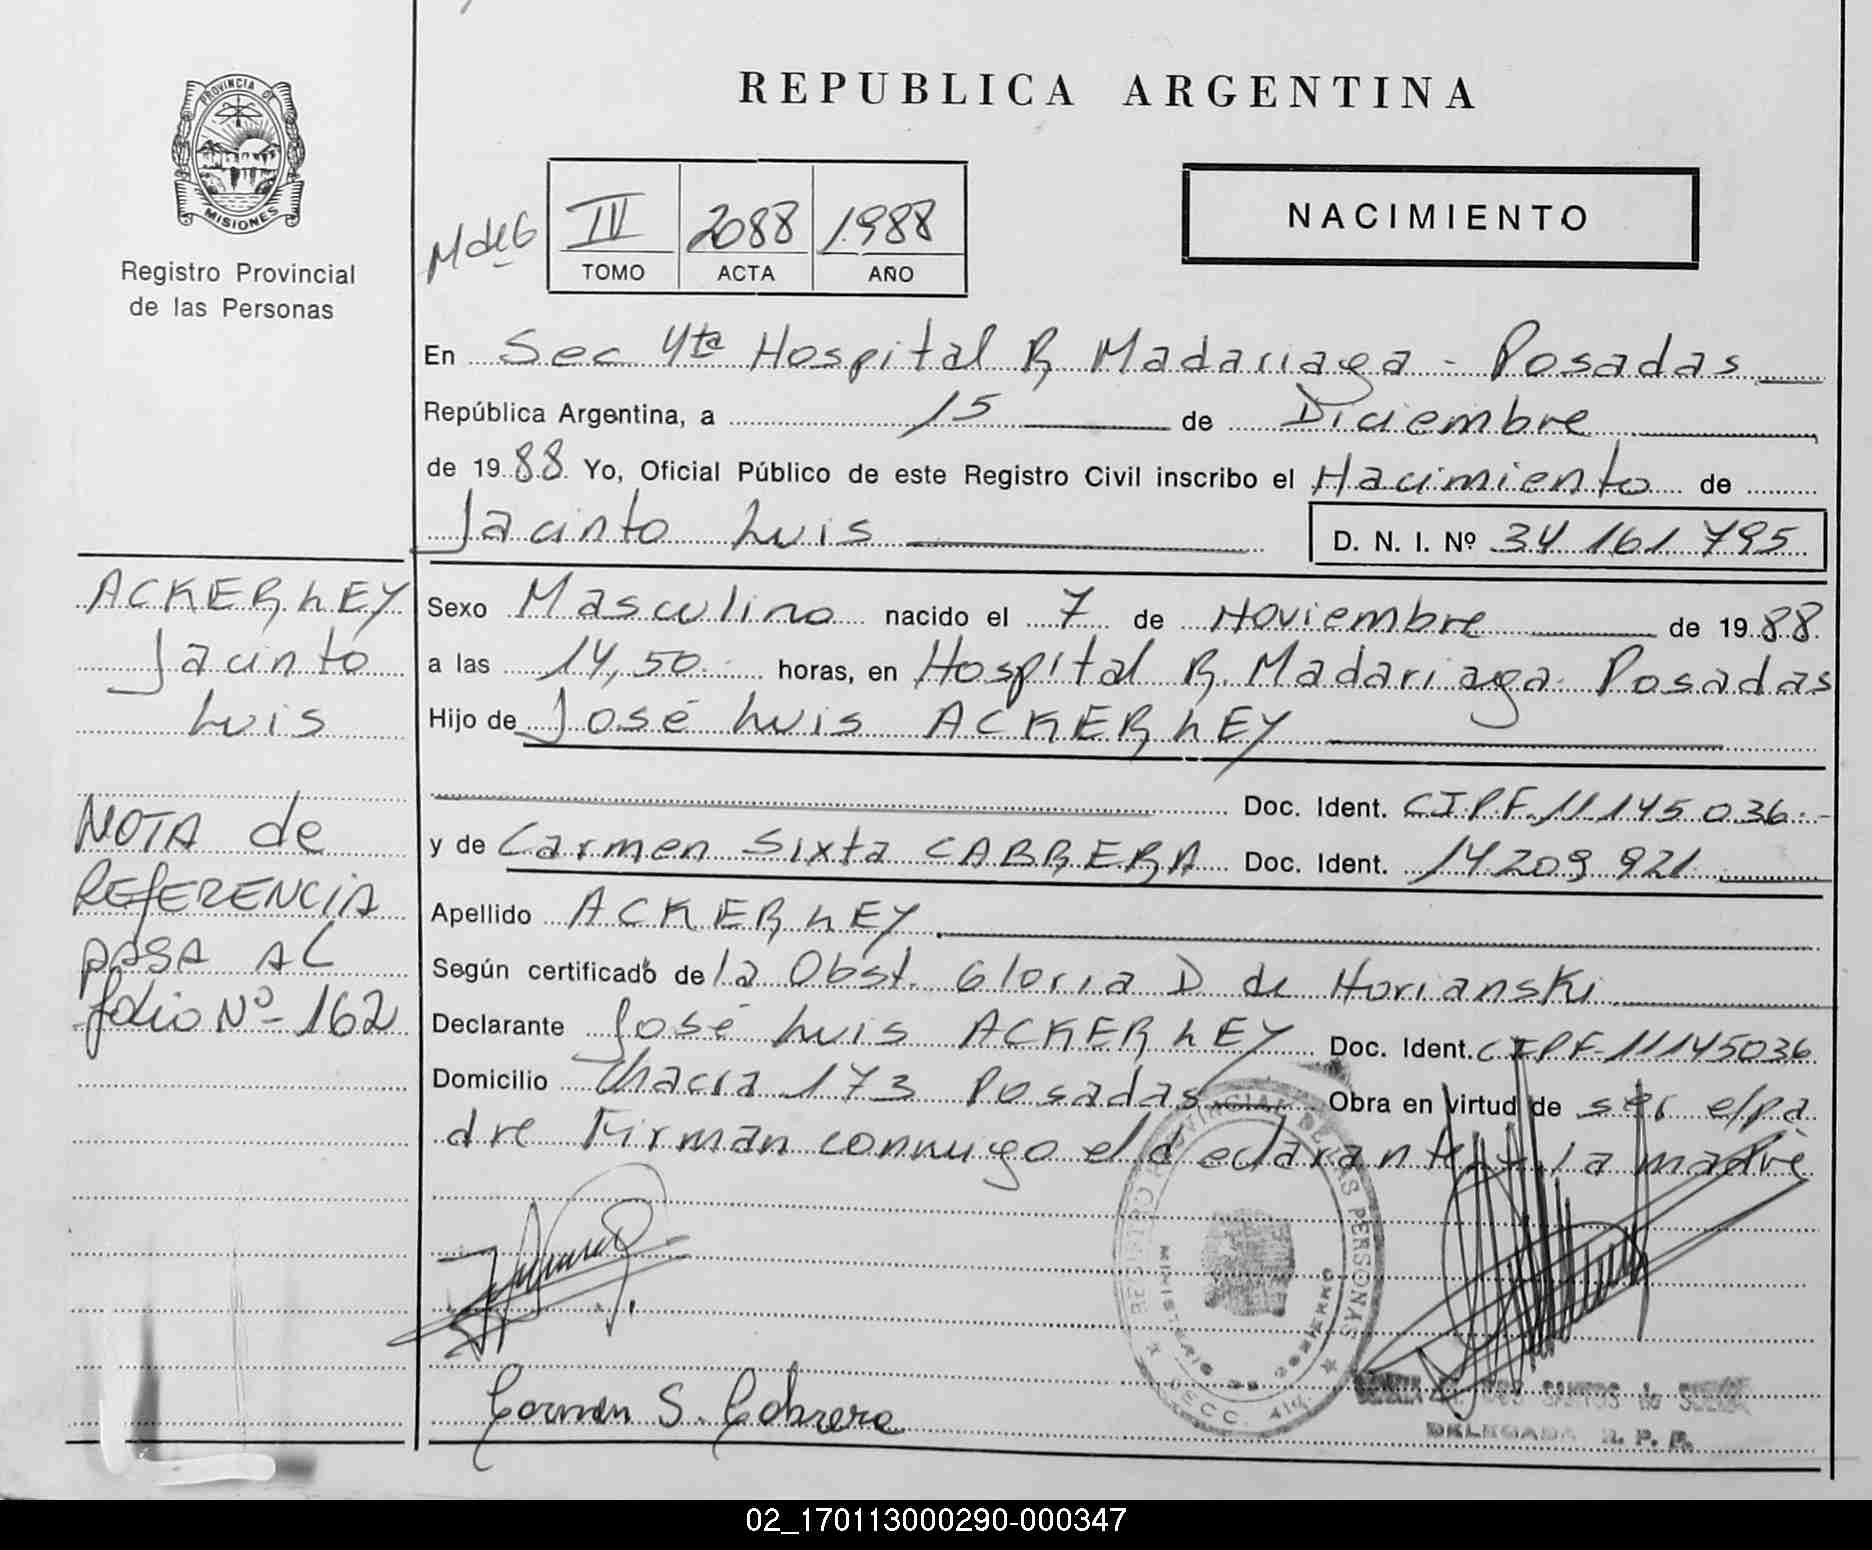 PROVINCIA DE
MISIONES
Registro Provincial
de las Personas
REPUBLICA ARGENTINA
M de G
IV 2088 1988
TOMO ACTA AÑO
NACIMIENTO
En Sec 4ta Hospital R Madariaga - Posadas
República Argentina, a 15 de Diciembre
de 1988 Yo, Oficial Público de este Registro Civil inscribo el Nacimiento de
Jacinto Luis D. N. I. Nº 34 161 795
ACKERLEY
Jacinto
Luis
Sexo Masculino nacido el 7 de Noviembre de 1988
a las 14,50 horas, en Hospital R. Madariaga Posadas
Hijo de José Luis ACKERLEY
Doc. Ident. CI.P.F. 11145036
y de Carmen Sixta CABRERA Doc. Ident. 14209921
NOTA de
REFERENCIA
PASA AL
folio Nº 162
Apellido ACKERLEY
Según certificado de la Obst. Gloria D de Norianski
Declarante José Luis ACKERLEY Doc. Ident. CIPF 11145036
Domicilio Chacra 173 Posadas Obra en virtud de ser el pa
dre Firman conmigo el declarante y la madre
REGISTRO PROVINCIAL DE LAS PERSONAS
MINISTERIO DE GOBIERNO
SECC. 4ta.
Carmen S. Cabrera
DOS SANTOS de
DELEGADA R. P. P.
02_170113000290-000347